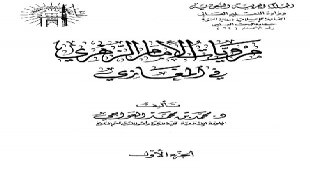 المملكة العربية السعودية
وزارة التعليم العالي
مرويات الإمام الزهري
في المغازي
تأليف
د. محمد بن محمد العواجي
الجزء الأول